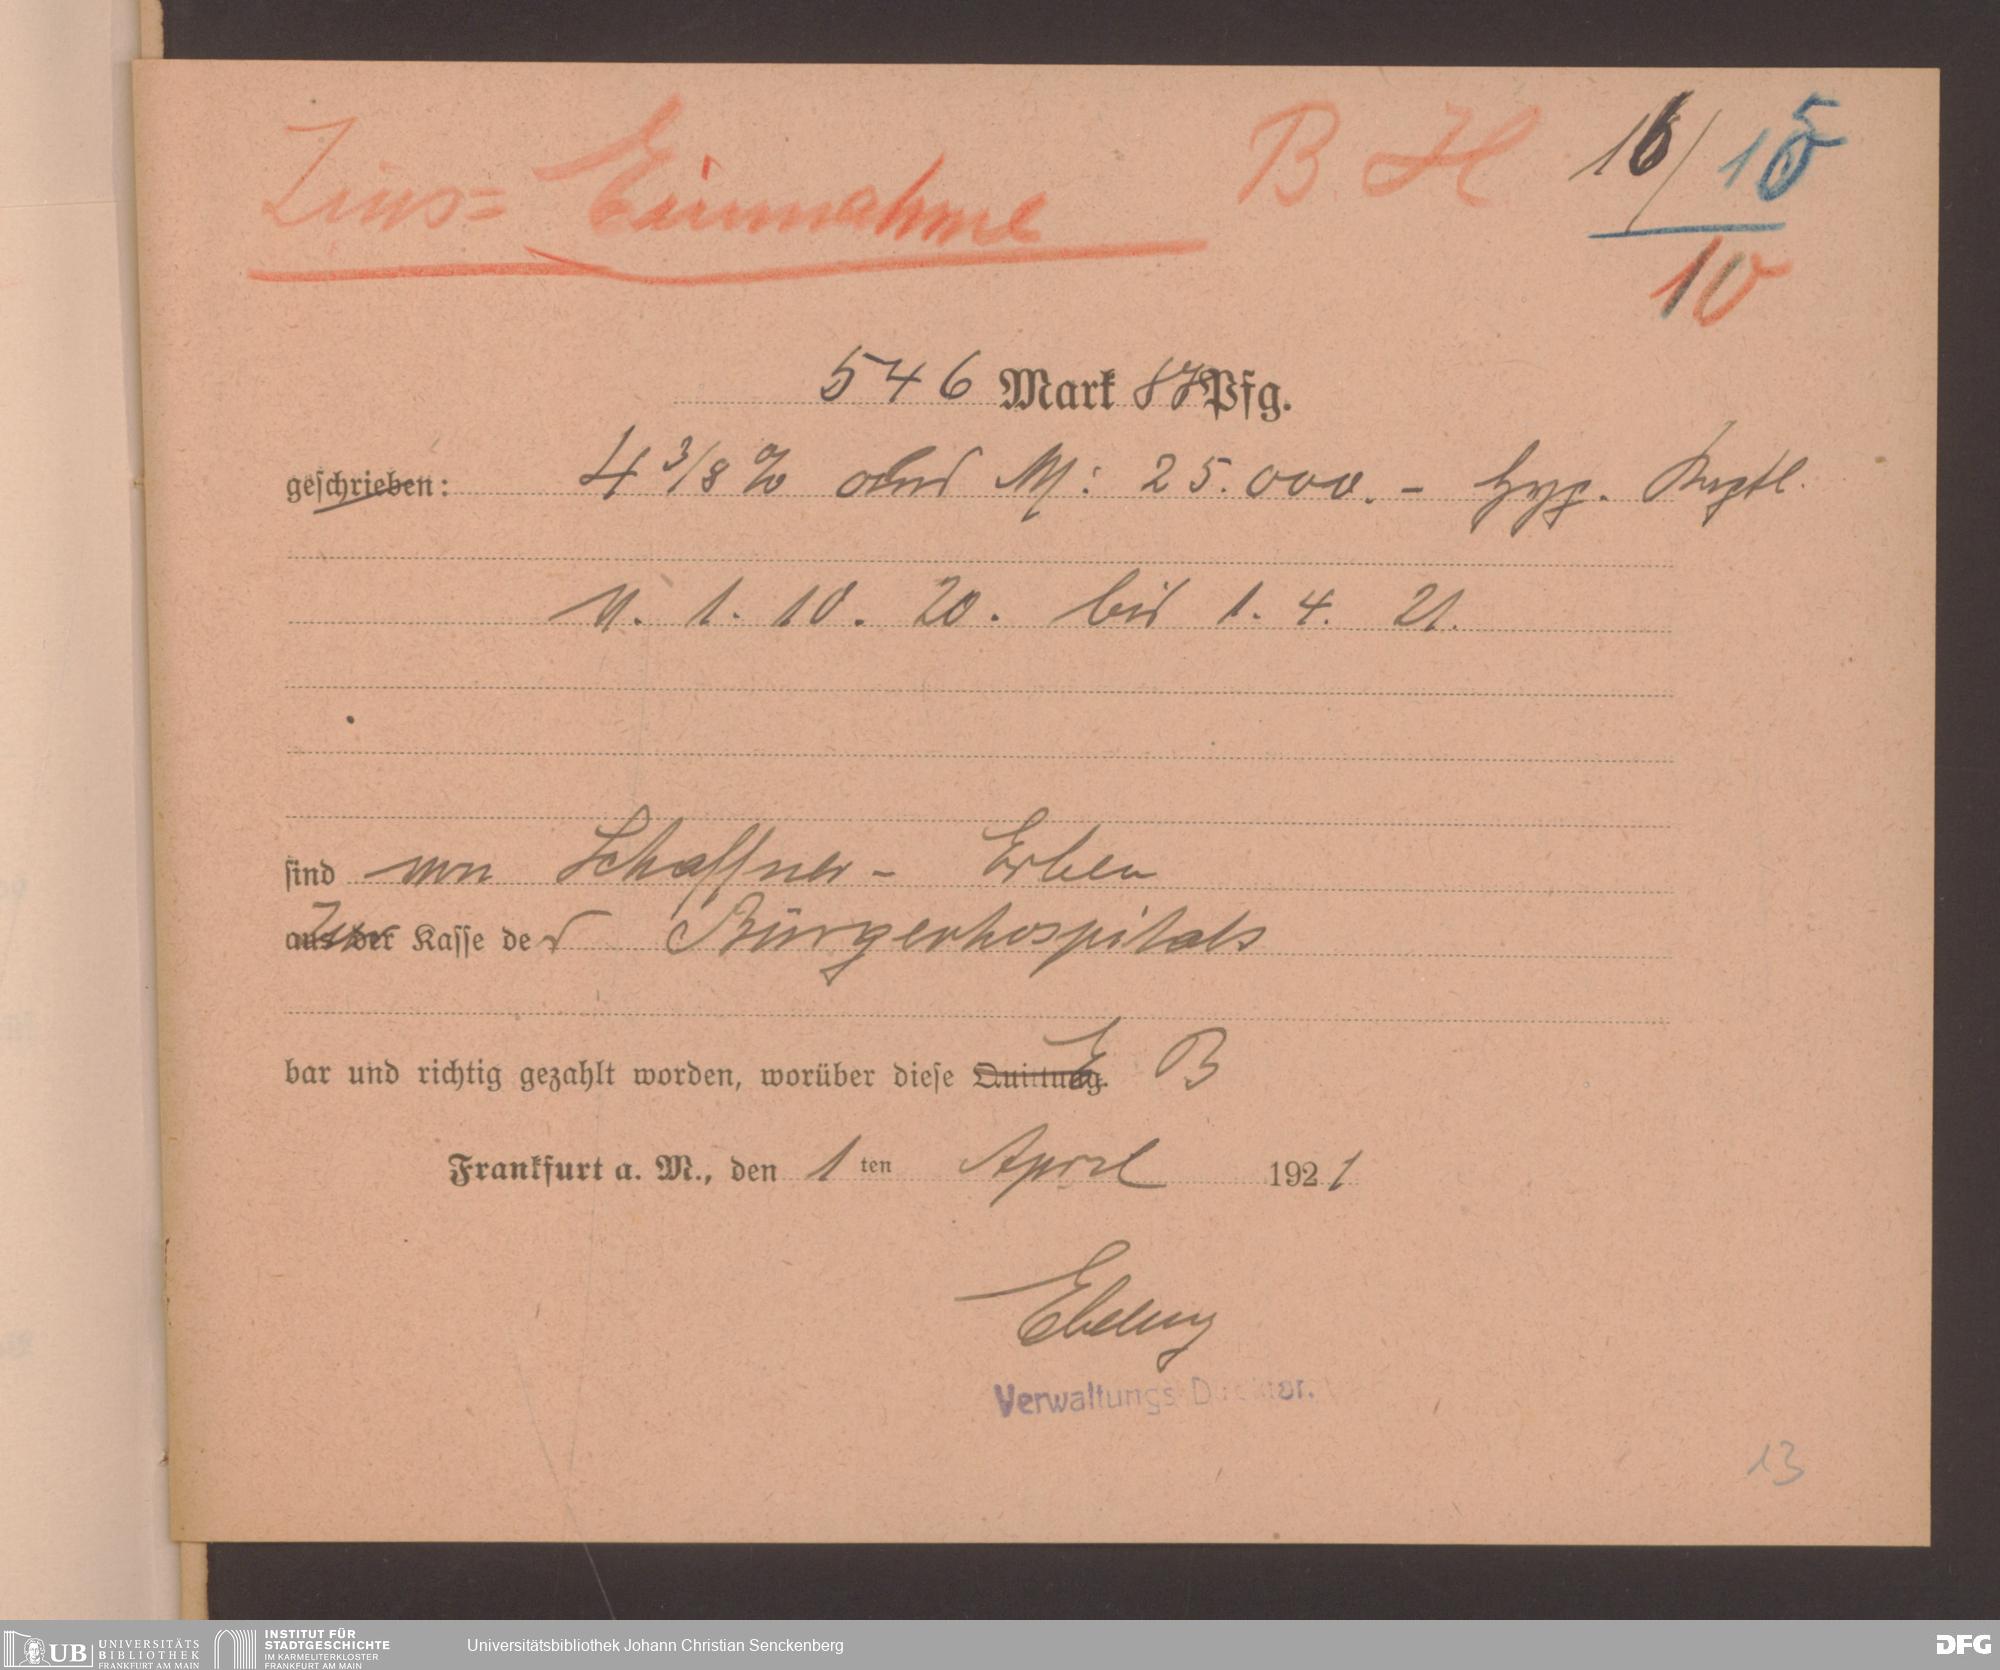 Zins= Einnahme B. H. 16/15
10
546 Mark 87 Pfg.
geschrieben: 4 3/8 % aus M: 25.000.- Hyp. Kaptl.
v. 1. 10. 20. bis 1. 4. 21.
sind von Schaffner - Erben
Zur Kasse der Bürgerhospitals
bar und richtig gezahlt worden, worüber diese Quittung. E B
Frankfurt a. M., den 1 ten April 1921
Ebeling
Verwaltungs-Direktor.
13
UB UNIVERSITÄTS
BIBLIOTHEK
FRANKFURT AM MAIN
INSTITUT FÜR
STADTGESCHICHTE
IM KARMELITERKLOSTER
FRANKFURT AM MAIN
Universitätsbibliothek Johann Christian Senckenberg
DFG